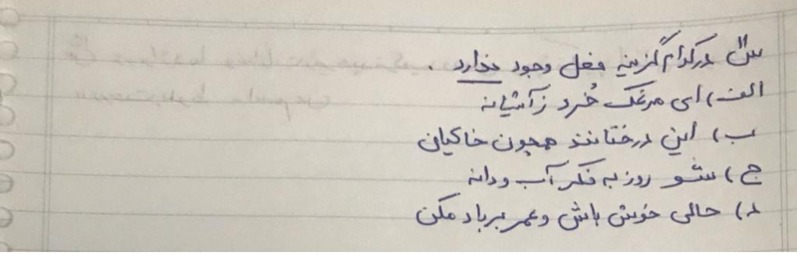 سوال درکدام گزینه فعل وجود ندارد .
الف) ای مرغک خُرد ز آشیانه
ب) این درختانند همچون خاکیان
ج) شو روز به فکر آب و دانه
د) حالی خوش باش و عمر برباد مکن